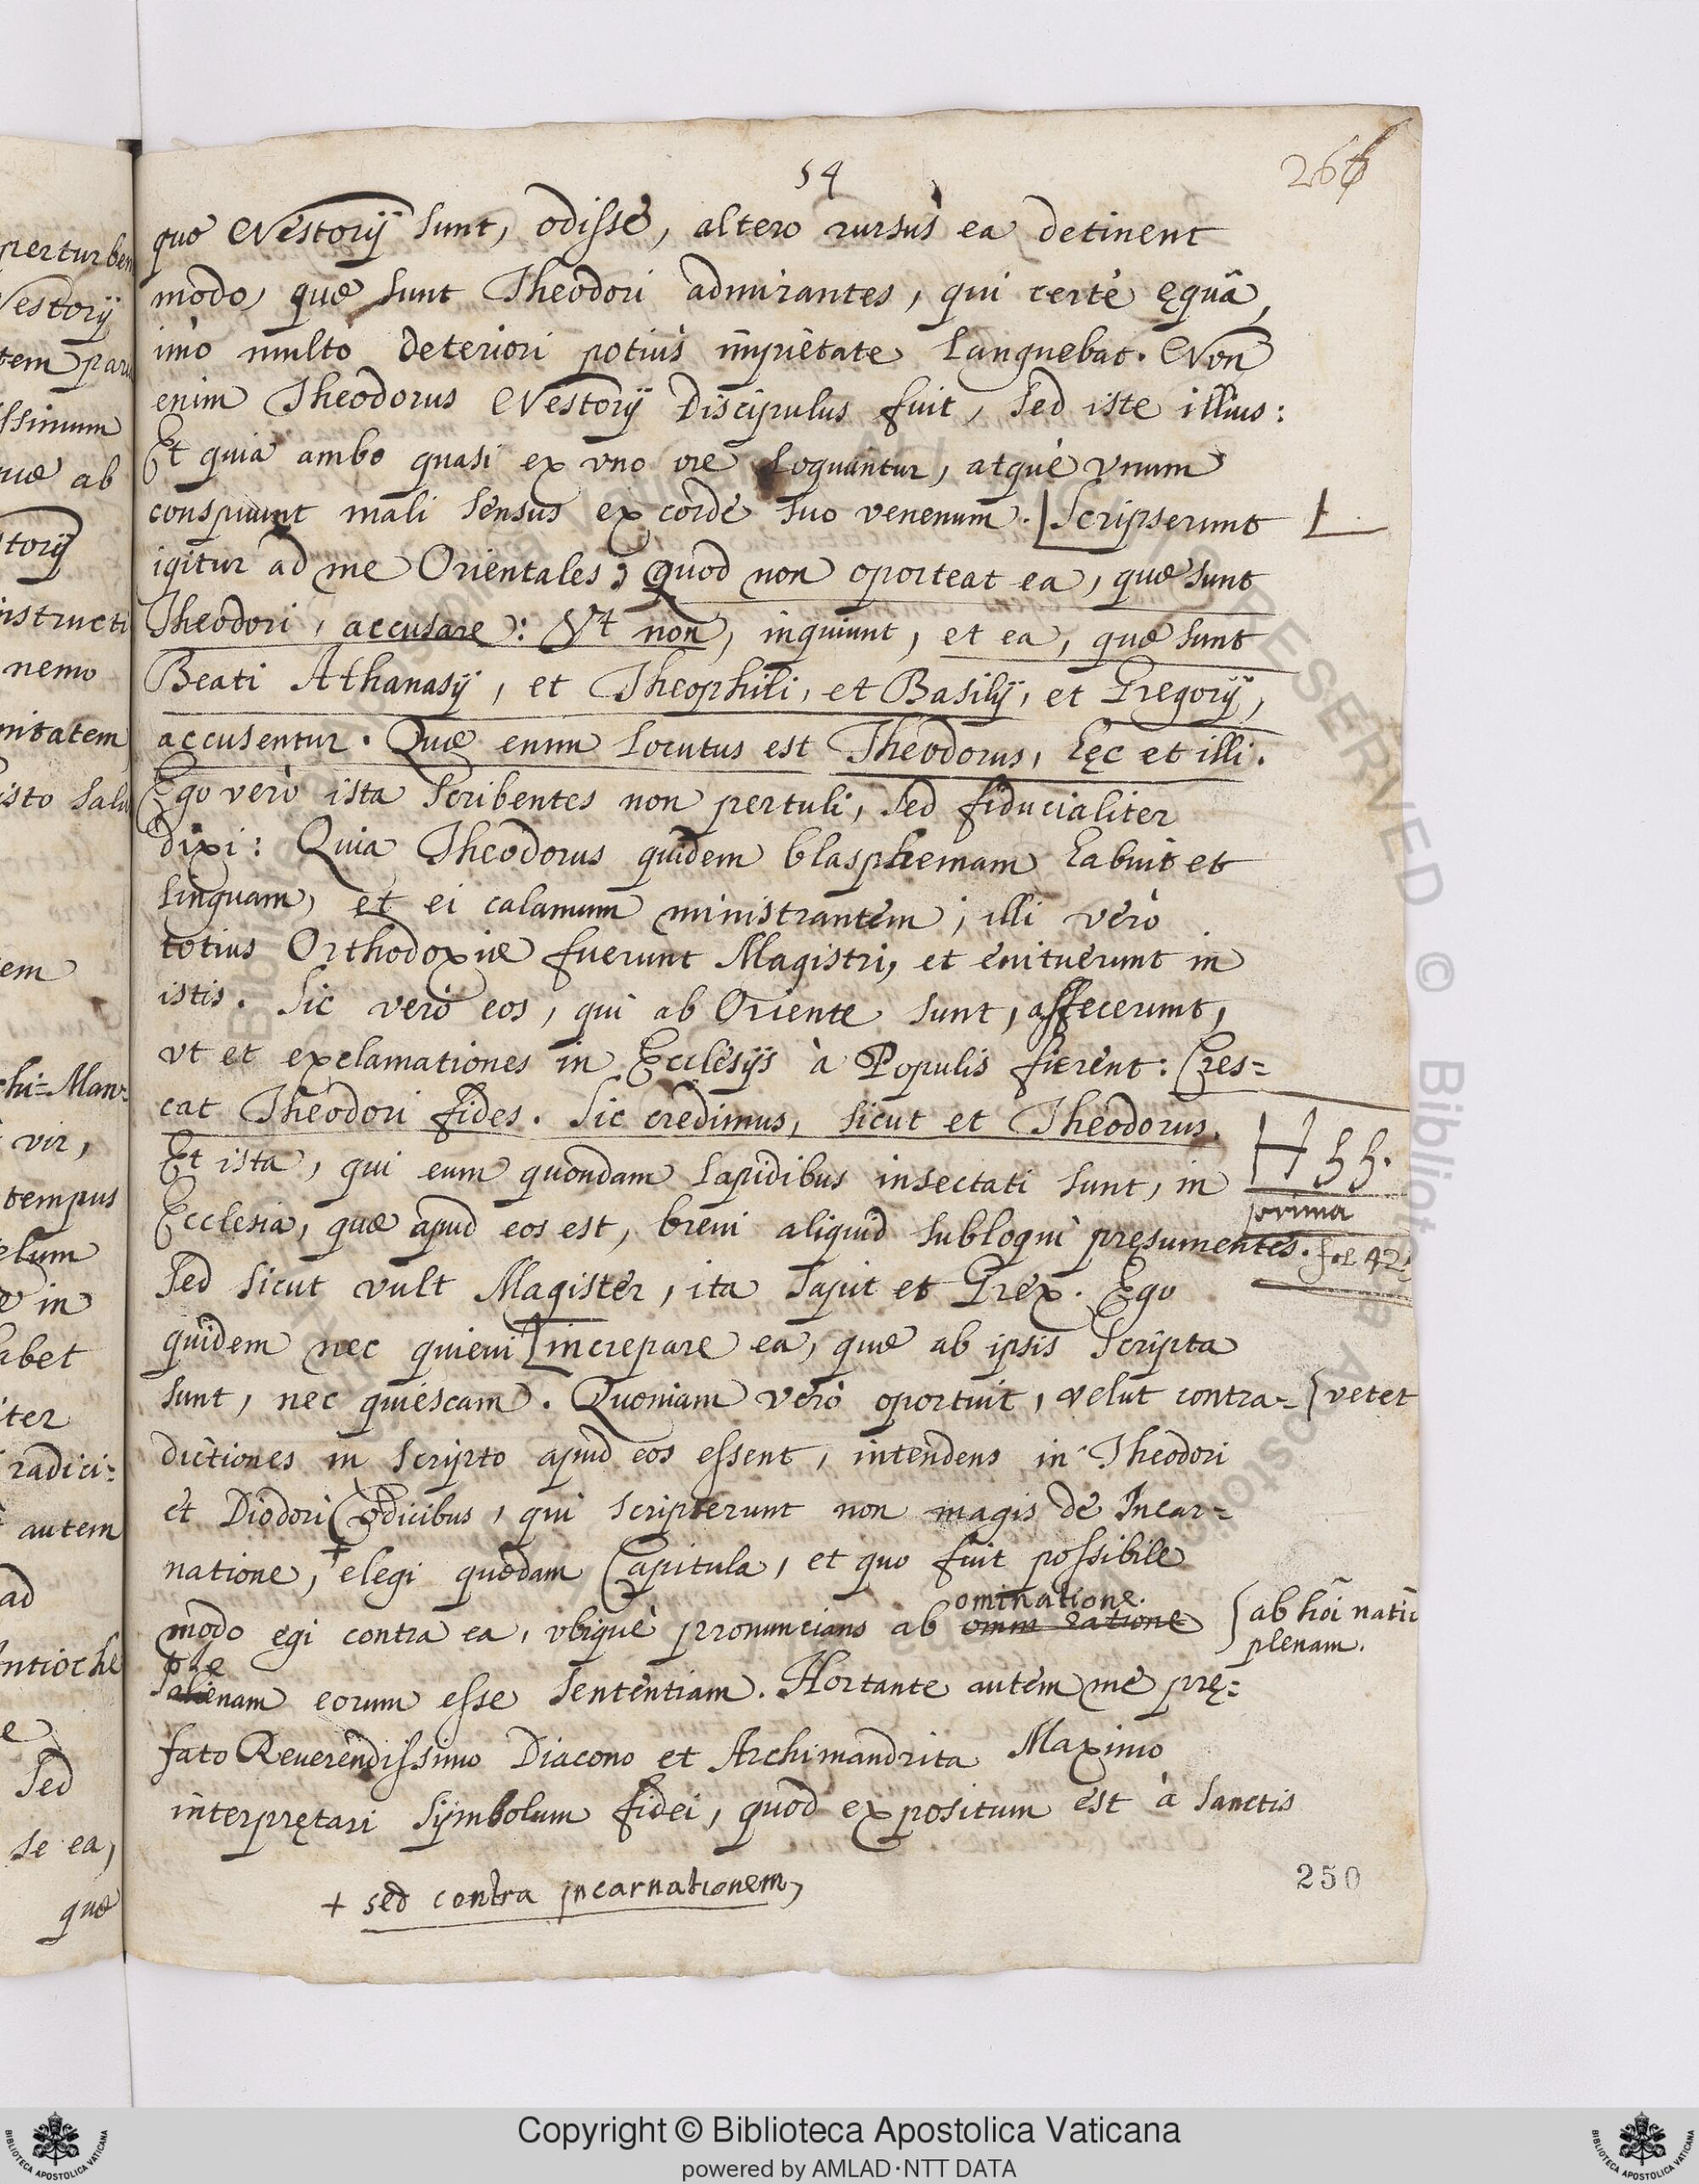 54
266
quæ Nestorij sunt, odisse, altero rursùs ea detinent
modo, quæ sunt Theodori admirantes, qui certè ęquâ,
imò multò deteriori potiùs impietate languebat. Non
enim Theodorus Nestorij Discipulus fuit, sed iste illius:
Et quia ambo quasi ex vno ore loquantur, atquè vnum
conspuunt mali sensus ex corde suo venenum. [Scripserunt
igitur ad me Orientales; quod non oporteat ea, quæ sunt
Theodori, accusare: Vt non, inquiunt, et ea, quæ sunt
Beati Athanasij, et Theophili, et Basilij, et Gregorij,
accusentur. Quæ enim locutus est Theodorus, hęc et illi.
Ego verò ista scribentes non pertuli, sed fiducialiter
dixi: Quia Theodorus quidem blasphemam habuit et
linguam, et ei calamum ministrantem; illi verò
totius Orthodoxiæ fuerunt Magistri, et enituerunt in
istis. Sic verò eos, qui ab Oriente sunt, affecerunt,
vt et exclamationes in Ecclesijs à Populis fierent: Cres=
cat Theodori fides. Sic credimus, sicut et Theodorus.
Et ista, qui eum quondam lapidibus insectati sunt, in
Ecclesia, quæ apud eos est, breui aliquid subloqui pręsumentes.
prima
fol. 42
Sed sicut vult Magister, ita sapit et Grex. Ego
quidem nec quieui [increpare ea, quæ ab ipsis scripta
sunt, nec quiescam. Quoniam verò oportuit, velut contra= {vetet
dictiones in scripto apud eos essent, intendens in Theodori
et Diodori Codicibus, qui scripserunt non magis de Incar=
natione, + elegi quædam Capitula, et quo fuit possibile
ominatione.
modo egi contra ea, vbiquè pronuncians ab omni ratione {ab hôi natiõ
plenam.
ple
alienam eorum esse sententiam. Hortante autem me prę=
fato Reuerendissimo Diacono et Archimandrita Maximo
interpretari Symbolum fidei, quod expositum est à Sanctis
+ sed contra incarnationem,
250
perturben
Nestorij
tem paru
ssimum
uæ ab
storij
instructi
nemo
nitatem
isto salu
em
chi=Man=
vir,
tempus
elum
e in
abet
iter
radici=
autem
ad
Antioche
e
Sed
se ea,
quæ
Copyright © Biblioteca Apostolica Vaticana
powered by AMLAD·NTT DATA